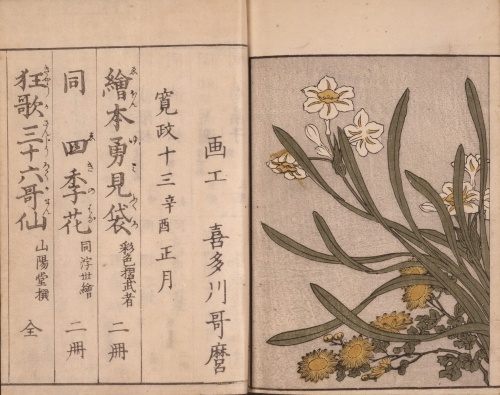 画工　喜多川哥麿
寛政十三辛酉正月
繪本勇見袋　彩色摺武者　二冊
同　四季花　同浮世繪　二冊
狂歌三十六哥仙　山陽堂撰　全